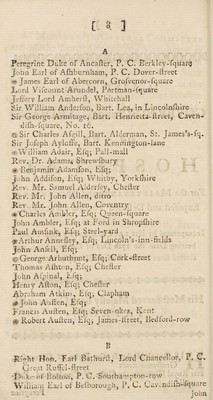 [ 3 ]
A
Peregrine Duke of Ancaster, P. C. Berkley-square
John Earl of Ashburnham, P. C. Dover-street
* James Earl of Abercorn, Grosvenor-square
Lord Viscount Arundel, Portman-square
Jeffery Lord Amherst, Whitehall
Sir William Anderson, Bart. Lea, in Lincolnshire
Sir George Armitage, Bart. Henrietta-street, Caven-
dish-square, No. 16.
* Sir Charles Asgill, Bart. Alderman, St. James's-sq.
Sir Joseph Ayloffe, Bart. Kennington-lane
* William Adair, Esq; Pall-mall
Rev. Dr. Adams, Shrewsbury
* Benjamin Adamson, Esq;
John Addison, Esq; Whitby, Yorkshire
Rev. Mr. Samuel Aldersey, Chester
Rev. Mr. John Allen, ditto
Rev. Mr. John Allen, Coventry
* Charles Ambler, Esq; Queen-square
John Ambler, Esq; at Ford in Shropshire
Paul Amsink, Esq; Steel-yard
* Arthur Annesley, Esq; Lincoln's-inn-fields
John Ansell, Esq;
* George Arbuthnot, Esq; Cork-street
Thomas Ashton, Esq; Chester
John Aspinal, Esq;
Henry Aston, Esq; Chester
Abraham Atkins, Esq, Clapham
* John Austen, Esq;
Francis Austen, Esq; Seven-oaks, Kent
* Robert Austen, Esq; James-street, Bedford-row
B
Right Hon. Earl Bathurst, Lord Chancellor, P. C.
Great Russel-street
Duke of Bolton, P. C. Southampton-row
William Earl of Besborough, P. C. Cavendish-square
John